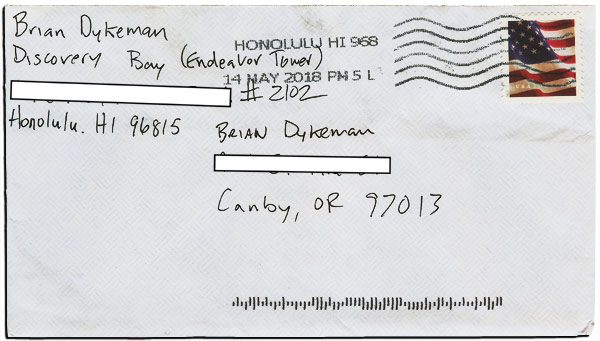 Brian Dykeman
Discovery Bay (Endeavor Tower)
#2102
Honolulu. HI 96815
HONOLULU HI 968
14 MAY 2018 PM 5 L
BRIAN Dykeman
Canby, OR 97013